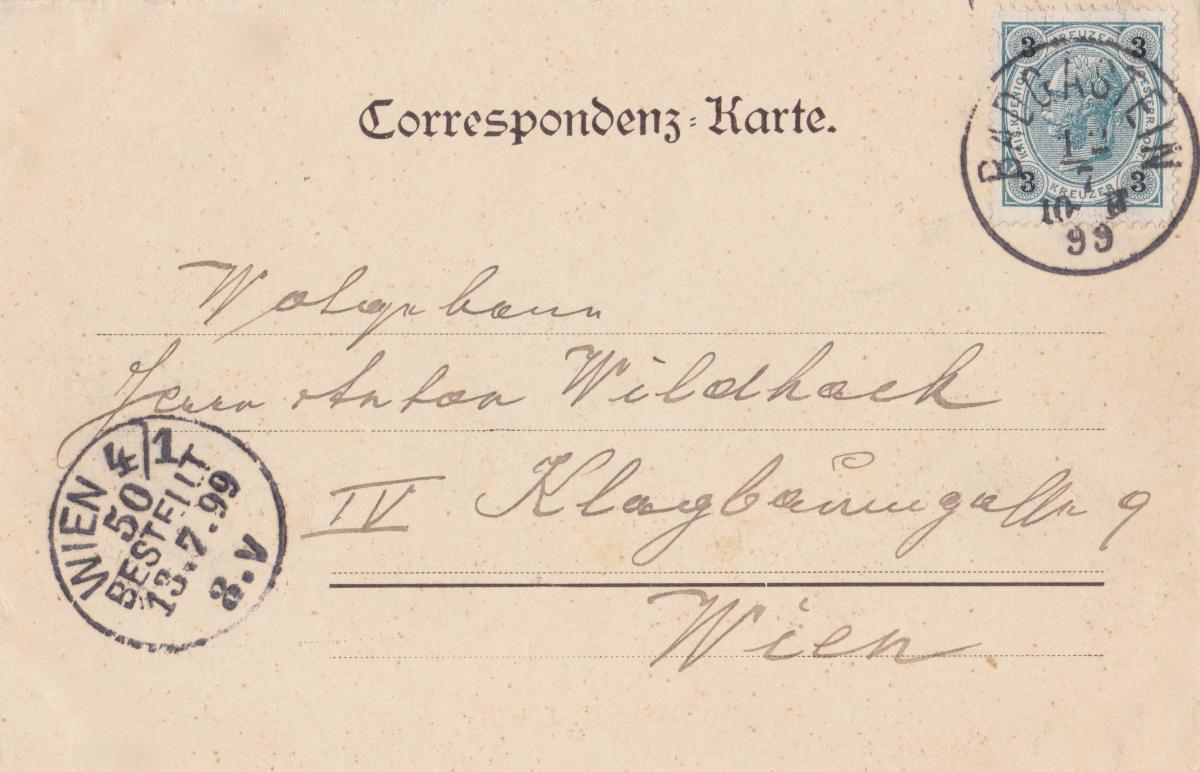 Correspondenz-Karte.
3 KREUZER 3
KAIS. KOENIGL. OESTERR. POST
3 KREUZER 3
BADGASTEIN
12
7
99
Wolgeborn
Herrn Anton Wildhack
IV Klagbaumgasse 9
Wien
WIEN 4/1
50
BESTELLT
13.7.99
8.V